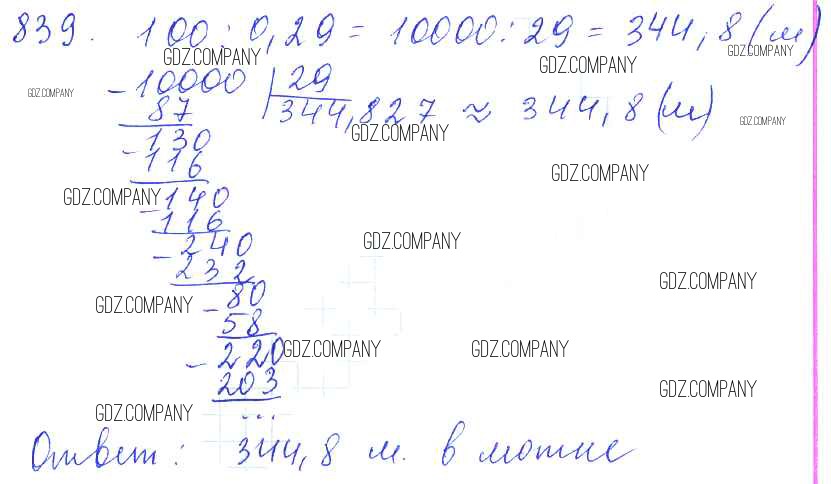 839. 100 : 0,29 = 10000 : 29 = 344,8 (м)
GDZ.COMPANY GDZ.COMPANY GDZ.COMPANY
-10000 29
GDZ.COMPANY
87 344,827 ≈ 344,8 (м)
GDZ.COMPANY GDZ.COMPANY
130
-116
GDZ.COMPANY
GDZ.COMPANY 140
-116
240
GDZ.COMPANY
-232
GDZ.COMPANY
80
GDZ.COMPANY
-58
220
GDZ.COMPANY GDZ.COMPANY
-203
GDZ.COMPANY
GDZ.COMPANY ...
Ответ: 344,8 м. в мотке